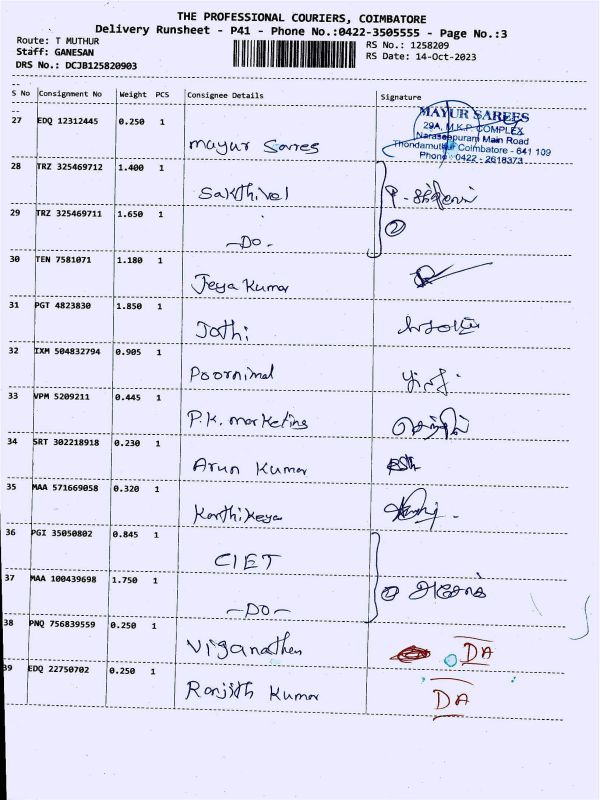 THE PROFESSIONAL COURIERS, COIMBATORE
Delivery Runsheet - P41 - Phone No.:0422-3505555 - Page No.:3
Route: T MUTHUR
RS No.: 1258209
Staff: GANESAN
RS Date: 14-Oct-2023
DRS No.: DCJB125820903
S No Consignment No Weight PCS Consignee Details Signature
27 EDQ 12312445 0.250 1 Mayur Sarees
MAYUR SAREES
29A, M.K.P. COMPLEX
Naraseepuram Main Road
Thondamuthur Coimbatore - 641 109
Phone: 0422 - 2618373
28 TRZ 325469712 1.400 1 Sakthivel
29 TRZ 325469711 1.650 1 -Do- 2
30 TEN 7581071 1.180 1 Jeya Kumar
31 PGT 4823830 1.850 1 Jothi
32 IXM 504832794 0.905 1 Poornimal
33 VPM 5209211 0.445 1 P.K. marketing
34 SRT 302218918 0.230 1 Arun Kumar
35 MAA 571669058 0.320 1 Karthikeya
36 PGI 35050802 0.845 1 CIET
37 MAA 100439698 1.750 1 -Do-
38 PNQ 756839559 0.250 1 Viganathan DA
39 EDQ 22750702 0.250 1 Ranjith Kumar DA